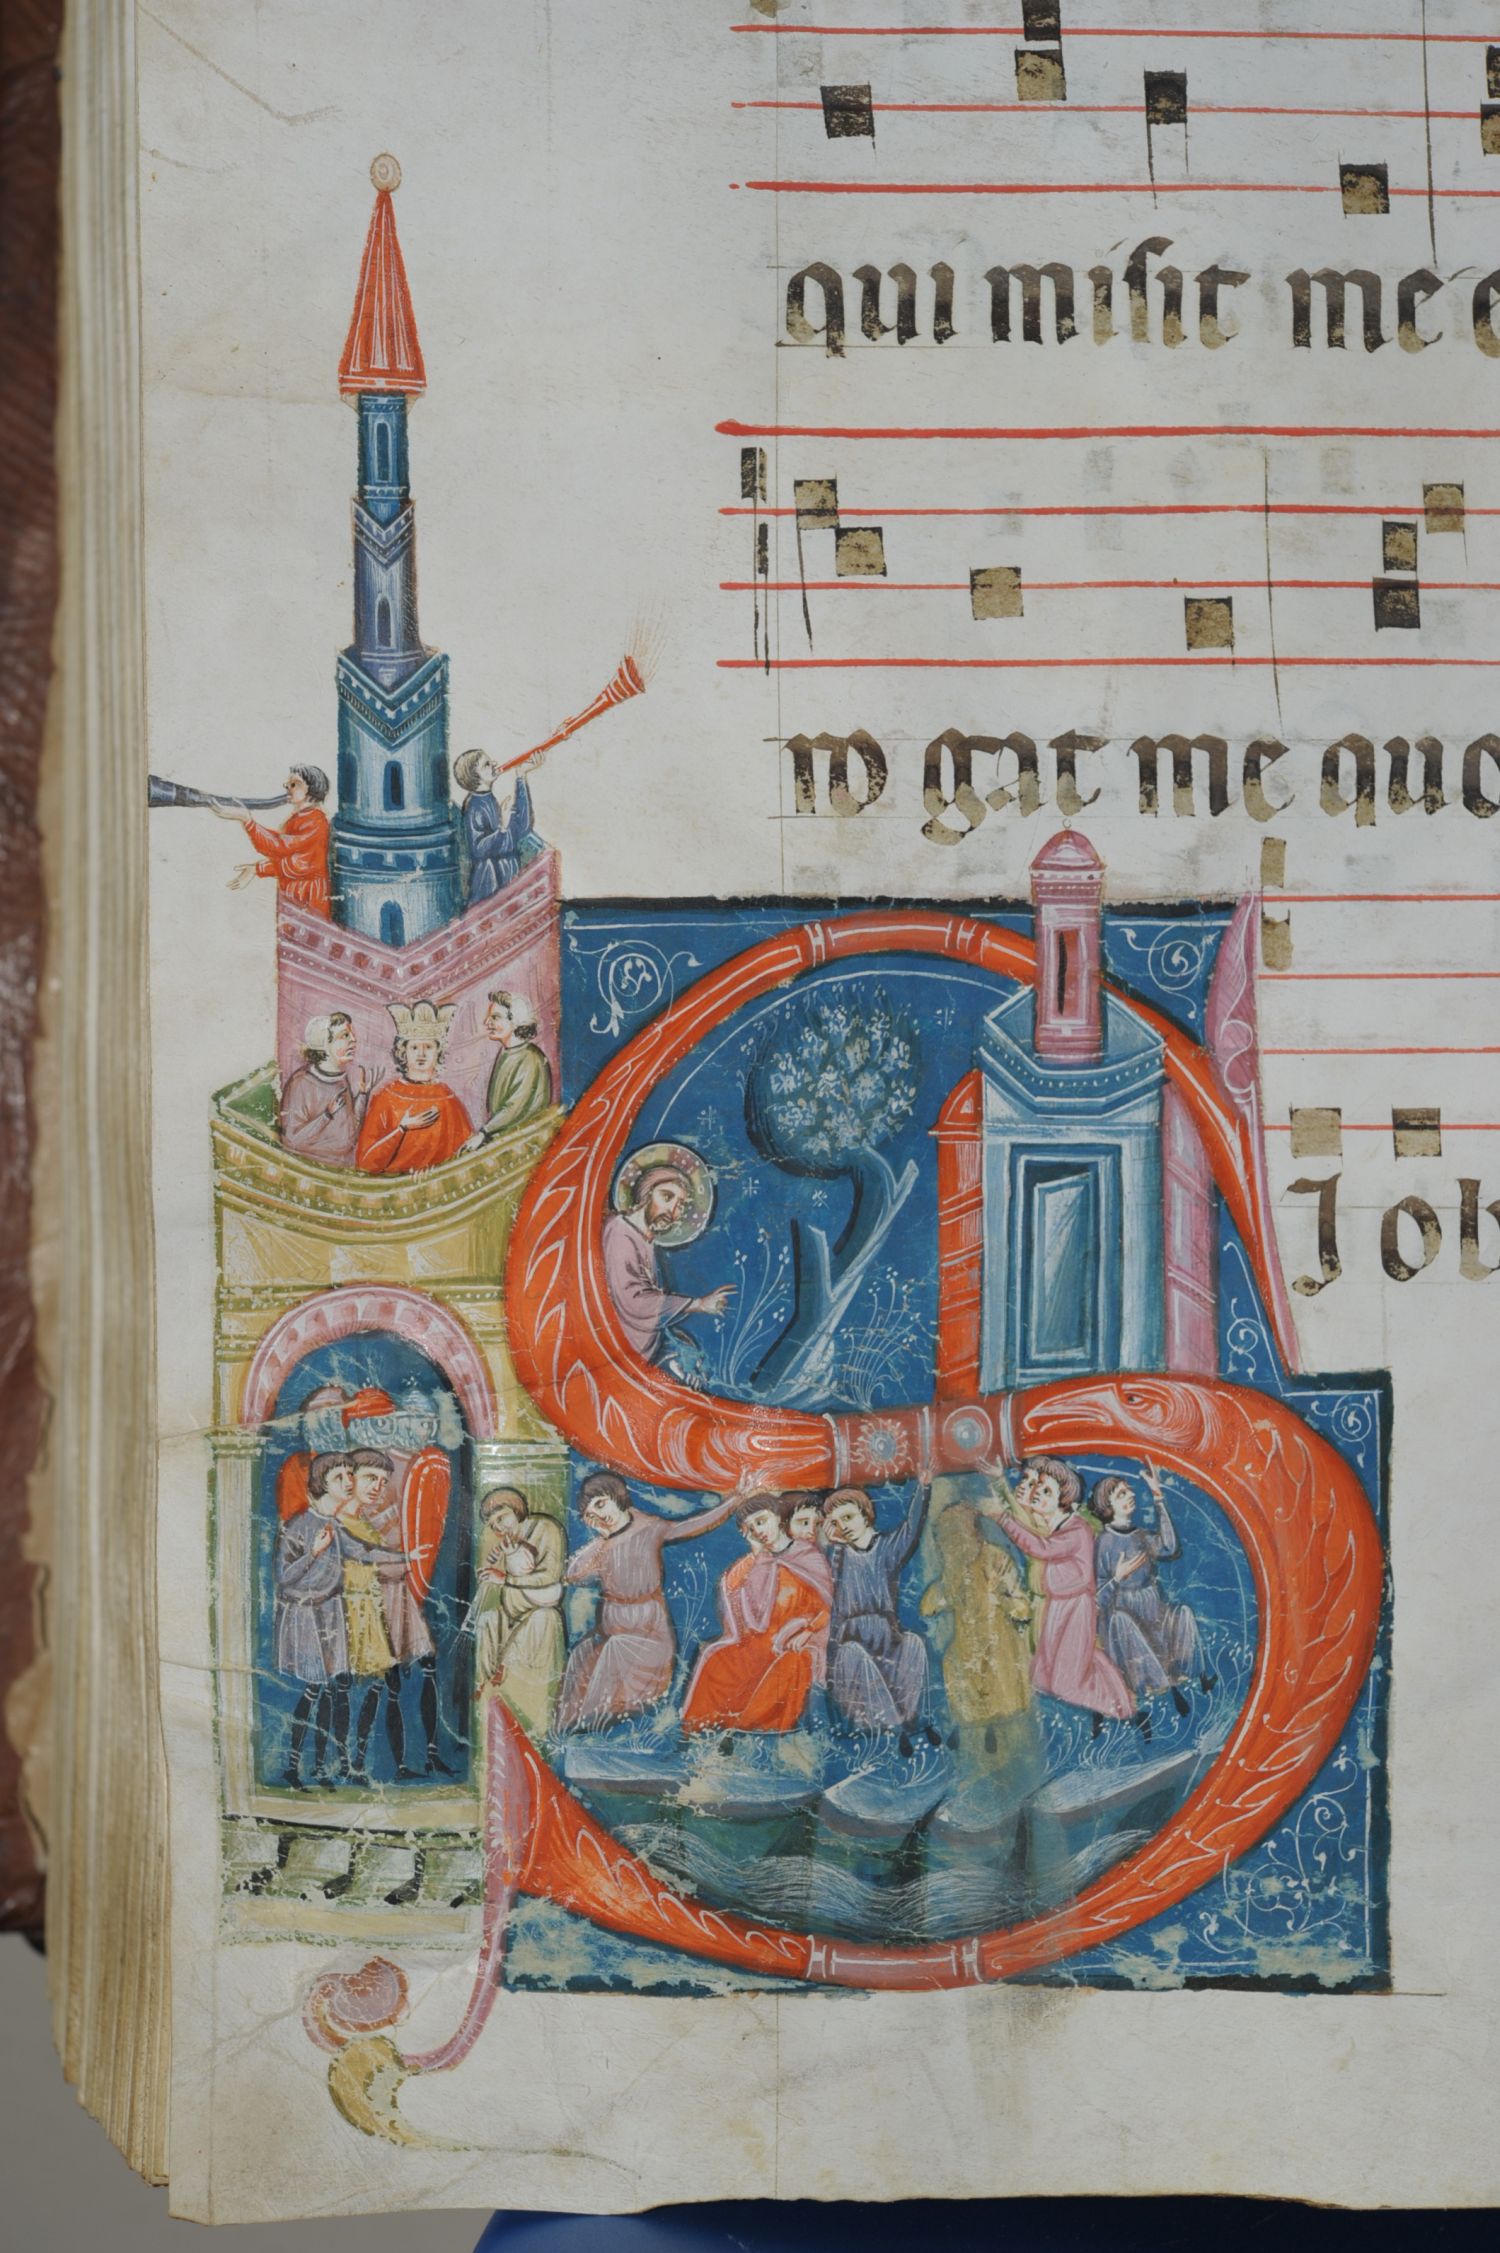 qui misit me
ro gat me quo
S
Job